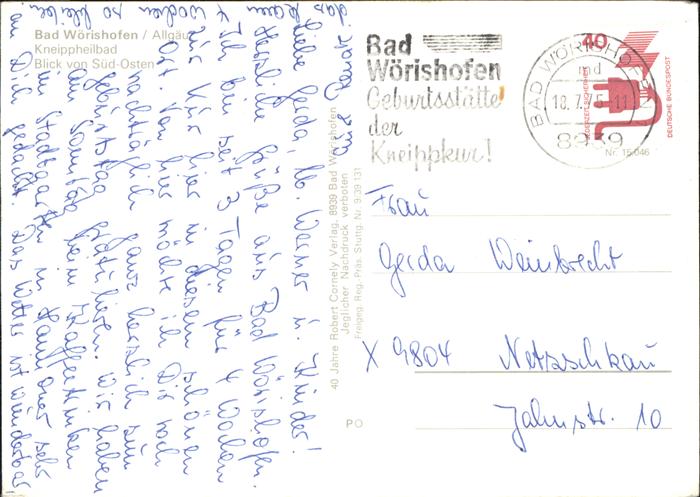 Bad Wörishofen / Allgäu
Kneippheilbad
Blick von Süd-Osten
Liebe Gerda, lb. Werner u. Kinder!
Herzliche Grüße aus Bad Wörishofen.
Ich bin seit 3 Tagen für 4 Wochen
zur Kur hier in diesem schönen
Ort. Von hier möchte ich Dir noch
nachträglich ganz herzlich zum
Geburtstag gratulieren. Wir haben
am Sonntag beim Kaffeetrinken
im Stadtgarten in Hannover sehr
an Dich gedacht. Das Wetter ist wunderbar
das kann
4 Wochen so bleiben.
Eure Renate
40 Jahre Robert Cornely Verlag, 8939 Bad Wörishofen
Jeglicher Nachdruck verboten
Freigeg. Reg. Präs. Stuttg. Nr. 9/39131
PO
Bad
Wörishofen
Geburtsstätte
der
Kneippkur!
BAD WÖRISHOFEN
md
8939
40
JEDERZEIT SICHERHEIT
DEUTSCHE BUNDESPOST
Nr. 15 046
Frau
Gerda Weinbrecht
X 9804 Netzschkau
Jahnstr. 10